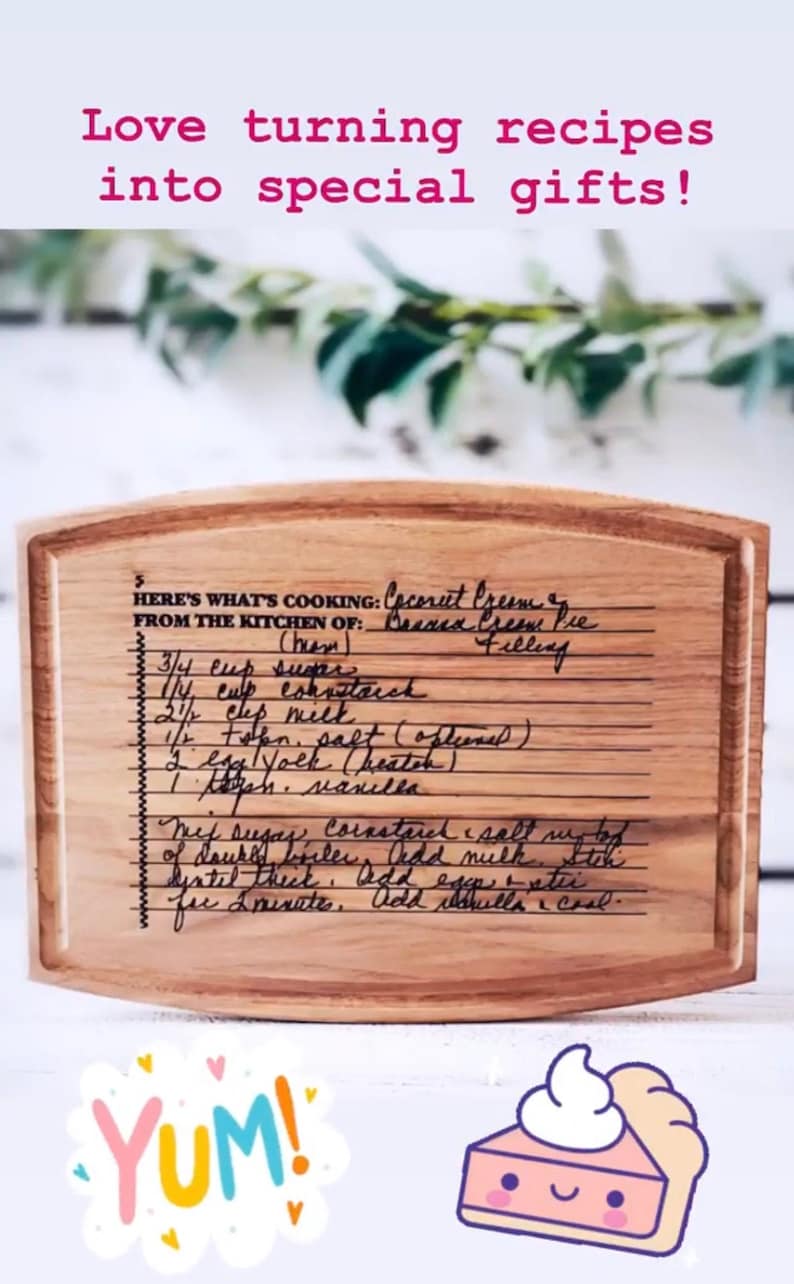 Love turning recipes
into special gifts!
HERE'S WHAT'S COOKING: Coconut Cream &
FROM THE KITCHEN OF: Banana Cream Pie
(Mom) Filling
3/4 cup sugar
1/4 cup cornstarch
2 1/2 cup milk
1/2 tspn. salt (optional)
egg yolk (beaten)
1 tspn. vanilla
Mix sugar, cornstarch & salt in top
of double boiler. Add milk. Stir
until thick. Add eggs & stir
for 2 minutes. Add vanilla & cool.
YUM!